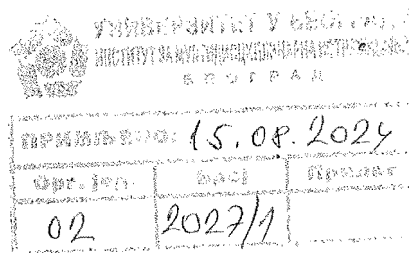 УНИВЕРЗИТЕТ У БЕО
ИНСТИТУТ ЗА МУЛТИДИСЦИПЛИНАРНА ИСТРАЖИВАЊА
БЕОГРАД
ПРИМЉЕНО: 15.08.2024
Орг. јед. Број Прилог
02 2027/1